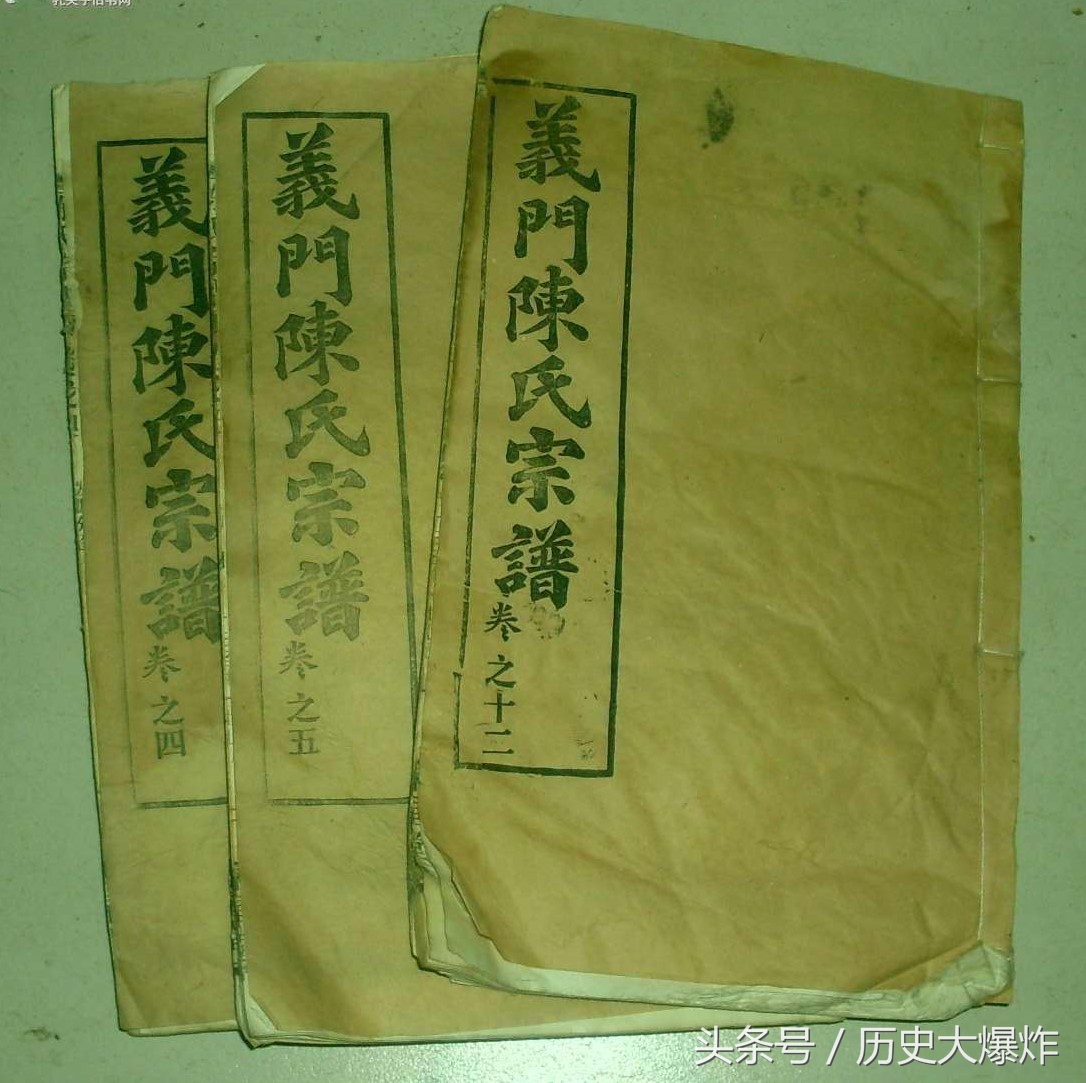 義門陳氏宗譜
卷之四
義門陳氏宗譜
卷之五
義門陳氏宗譜
卷之十二
头条号 / 历史大爆炸